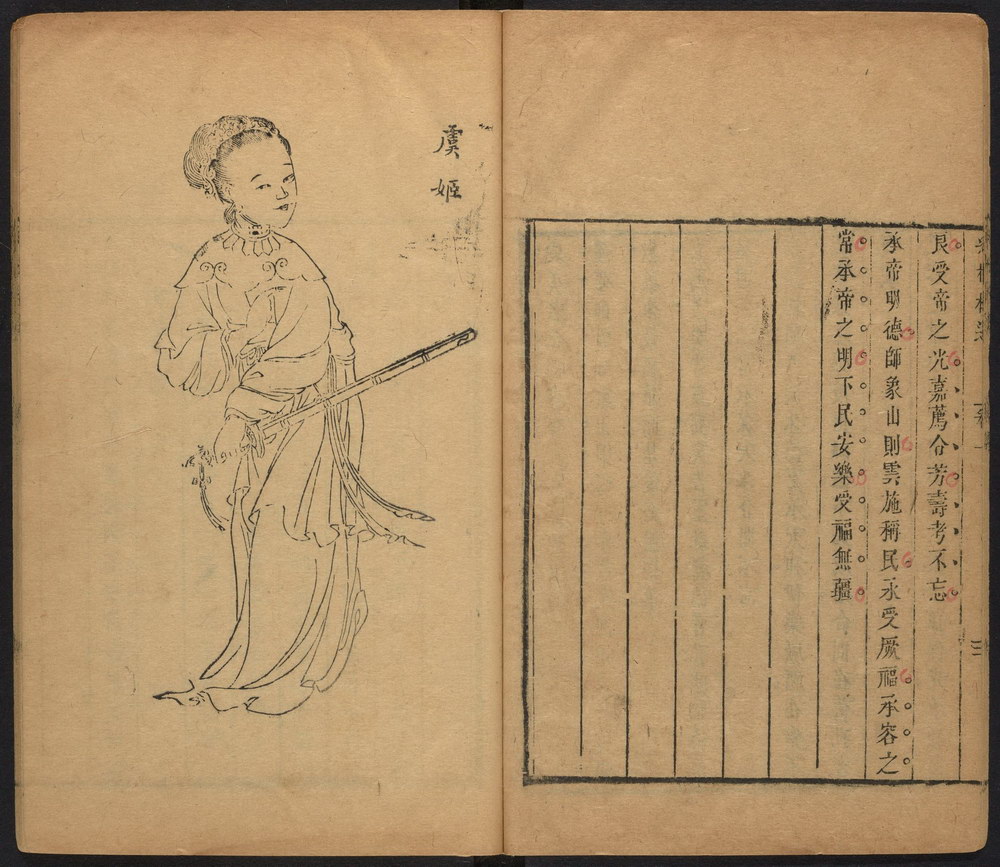 良受帝之光嘉薦令芳壽考不忘
承帝明德師象山則雲施稱民永受厥福承容之
常承帝之明下民安樂受福無疆
三
虞姬